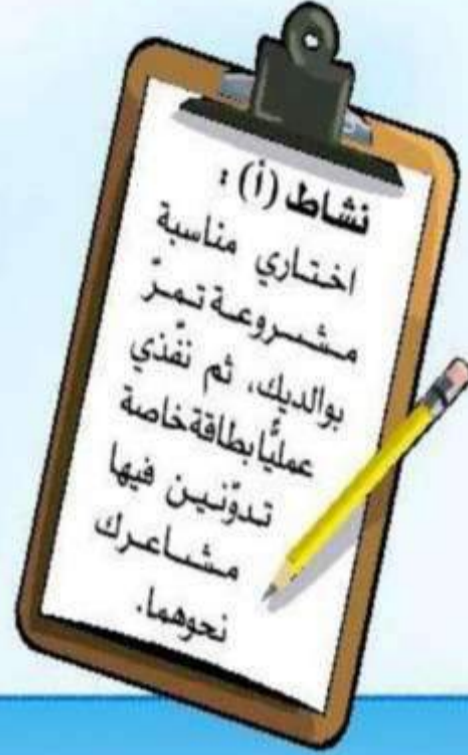 نشاط (أ) :
اختاري مناسبة
مشروعة تمرّ
بوالديك، ثم نفّذي
عمليًا بطاقة خاصة
تدوّنين فيها
مشاعرك
نحوهما.